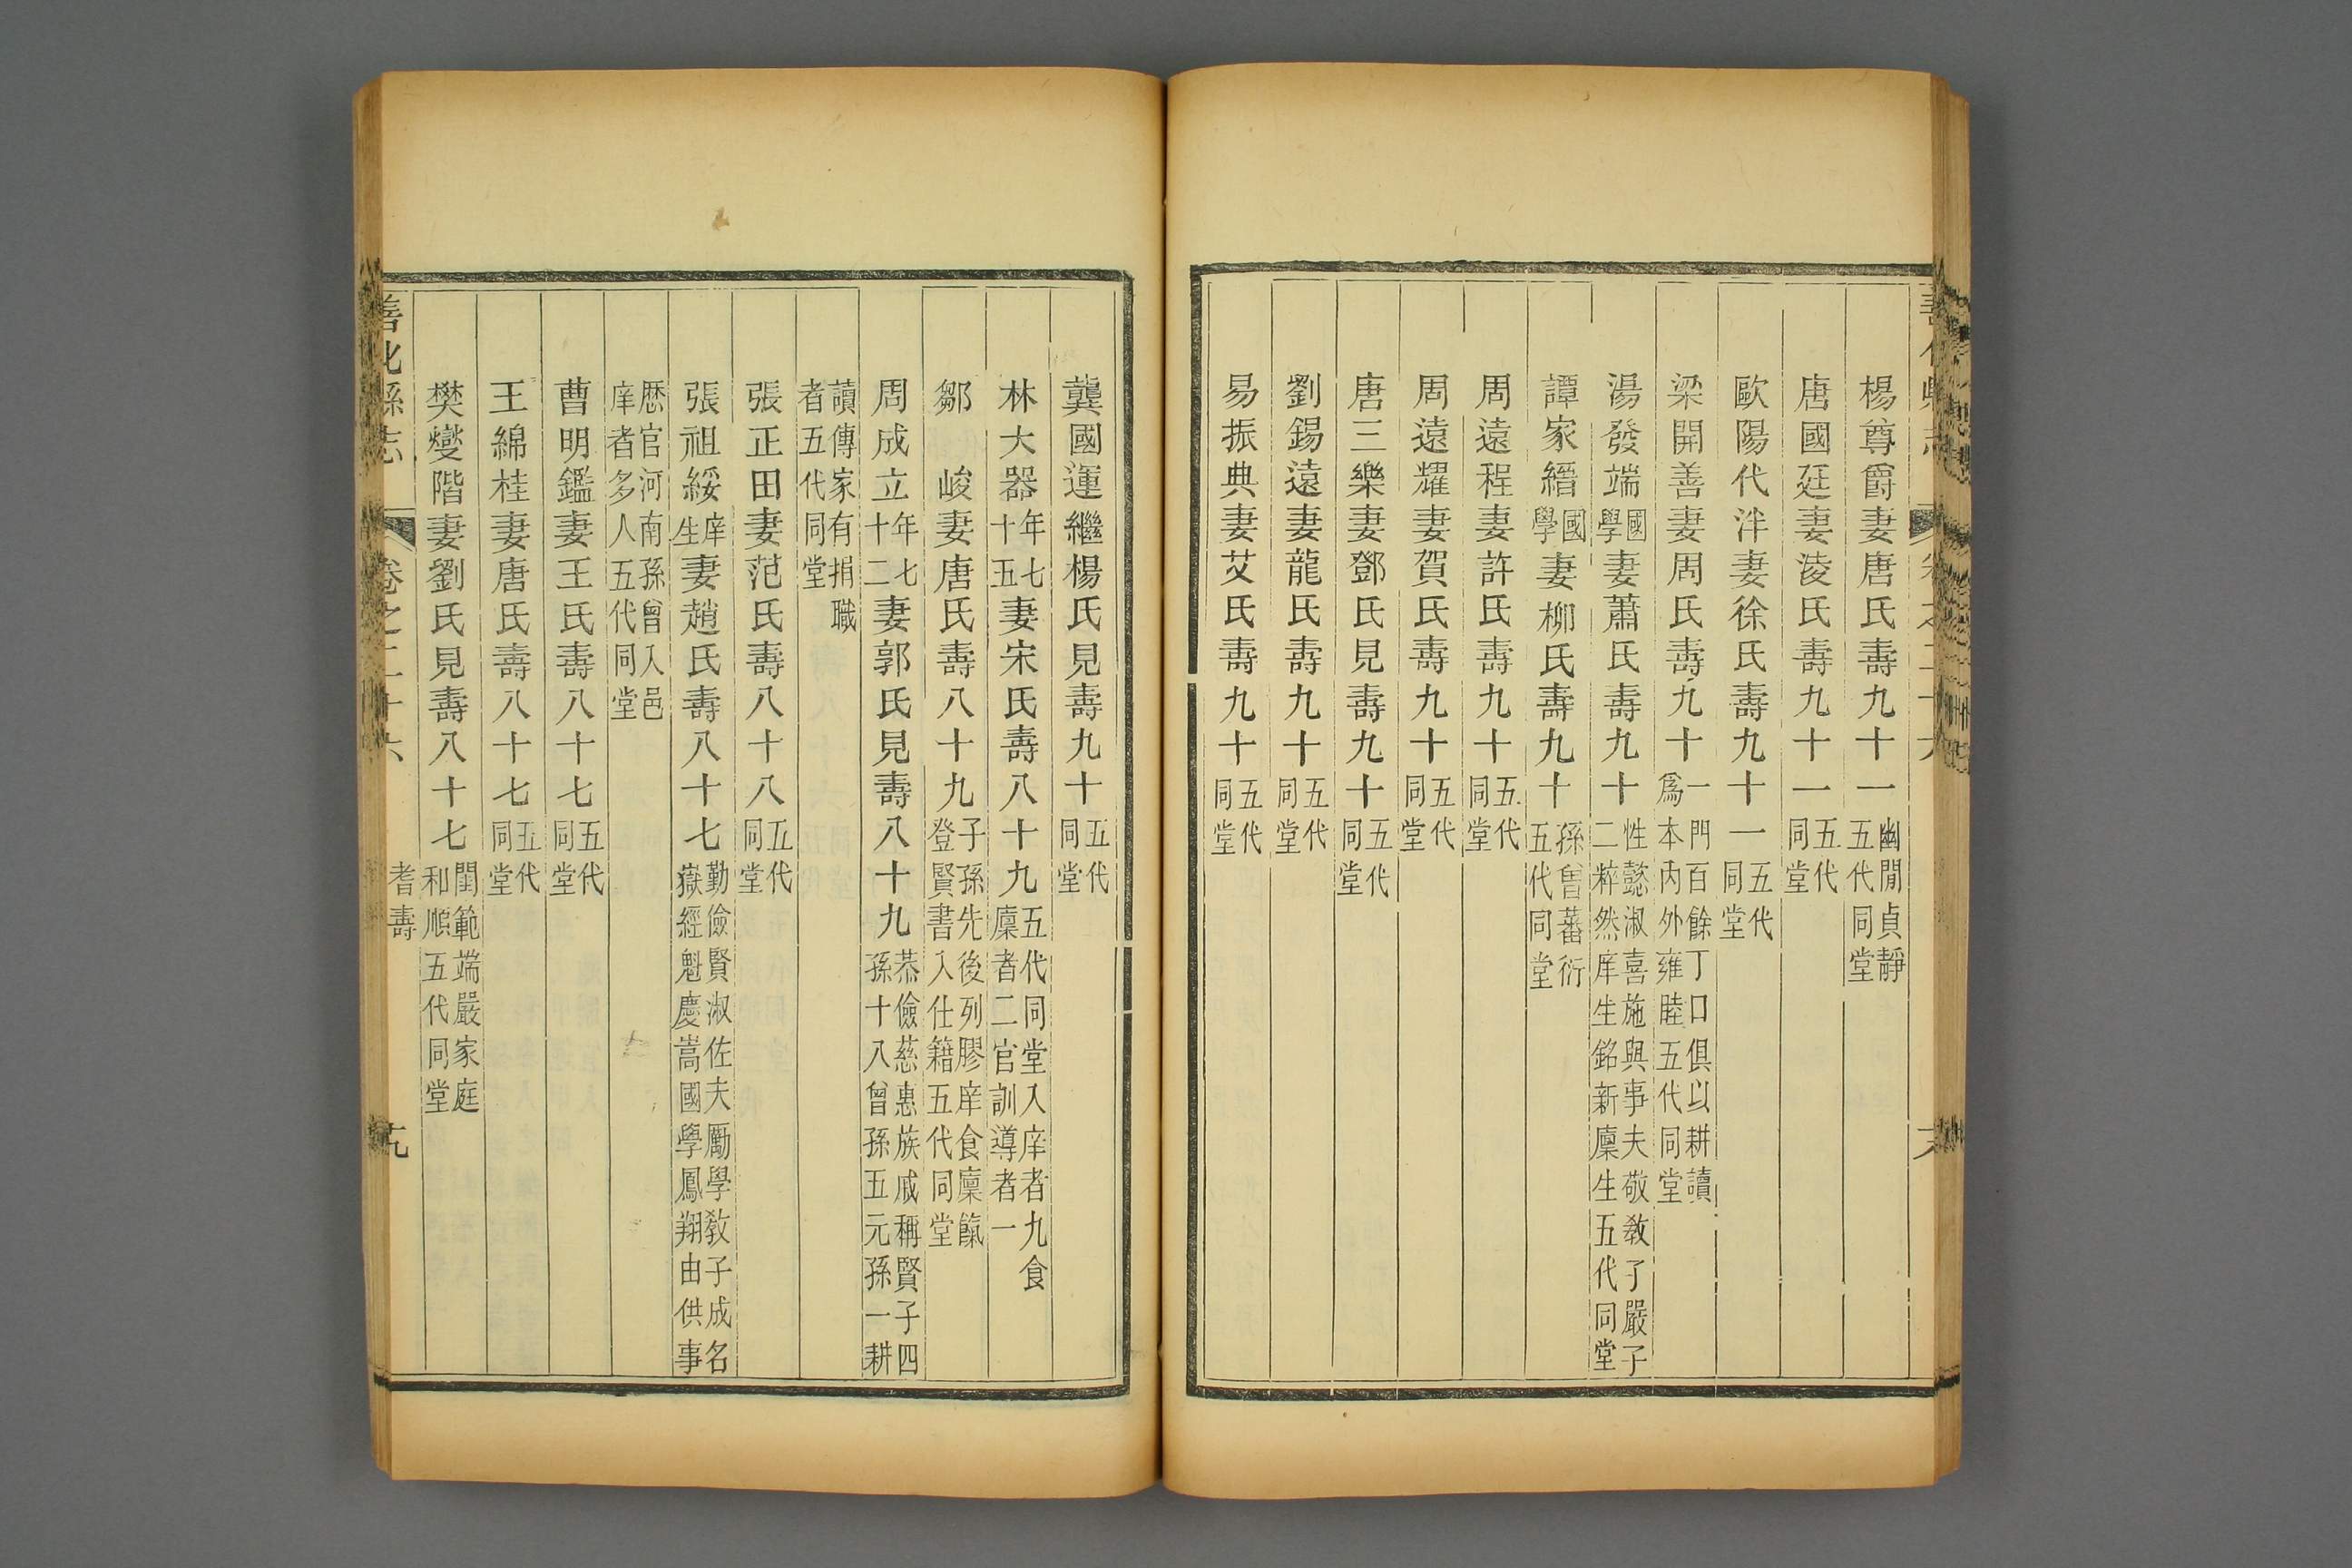 楊尊爵妻唐氏壽九十一幽閒貞靜五代同堂
唐國廷妻淩氏壽九十一五代同堂
歐陽代泮妻徐氏壽九十一五代同堂
梁開善妻周氏壽九十一門百餘丁口俱以耕讀爲本內外雍睦五代同堂
湯發端國學妻蕭氏壽九十性懿淑喜施與事夫敬敎子嚴子二粹然庠生銘新廩生五代同堂
譚家縉國學妻柳氏壽九十孫曾蕃衍五代同堂
周遠程妻許氏壽九十五代同堂
周遠耀妻賀氏壽九十五代同堂
唐三樂妻鄧氏見壽九十五代同堂
劉錫遠妻龍氏壽九十五代同堂
易振典妻艾氏壽九十五代同堂
龔國運繼楊氏見壽九十五代同堂
林大器年七十五妻宋氏壽八十九五代同堂入庠者九食廩者二官訓導者一
鄒峻妻唐氏壽八十九子孫先後列膠庠食廩餼登賢書入仕籍五代同堂
周成立年七十二妻郭氏見壽八十九恭儉慈惠族戚稱賢子四孫十八曾孫五元孫一耕
讀傳家有捐職者五代同堂
張正田妻范氏壽八十八五代同堂
張祖綏庠生妻趙氏壽八十七勤儉賢淑佐夫勵學敎子成名嶽經魁慶嵩國學鳳翔由供事
歷官河南孫曾入邑庠者多人五代同堂
曹明鑑妻王氏壽八十七五代同堂
王綿桂妻唐氏壽八十七五代同堂
樊燮階妻劉氏見壽八十七閨範端嚴家庭和順五代同堂
善化縣志 卷之二十六 耆壽 十九